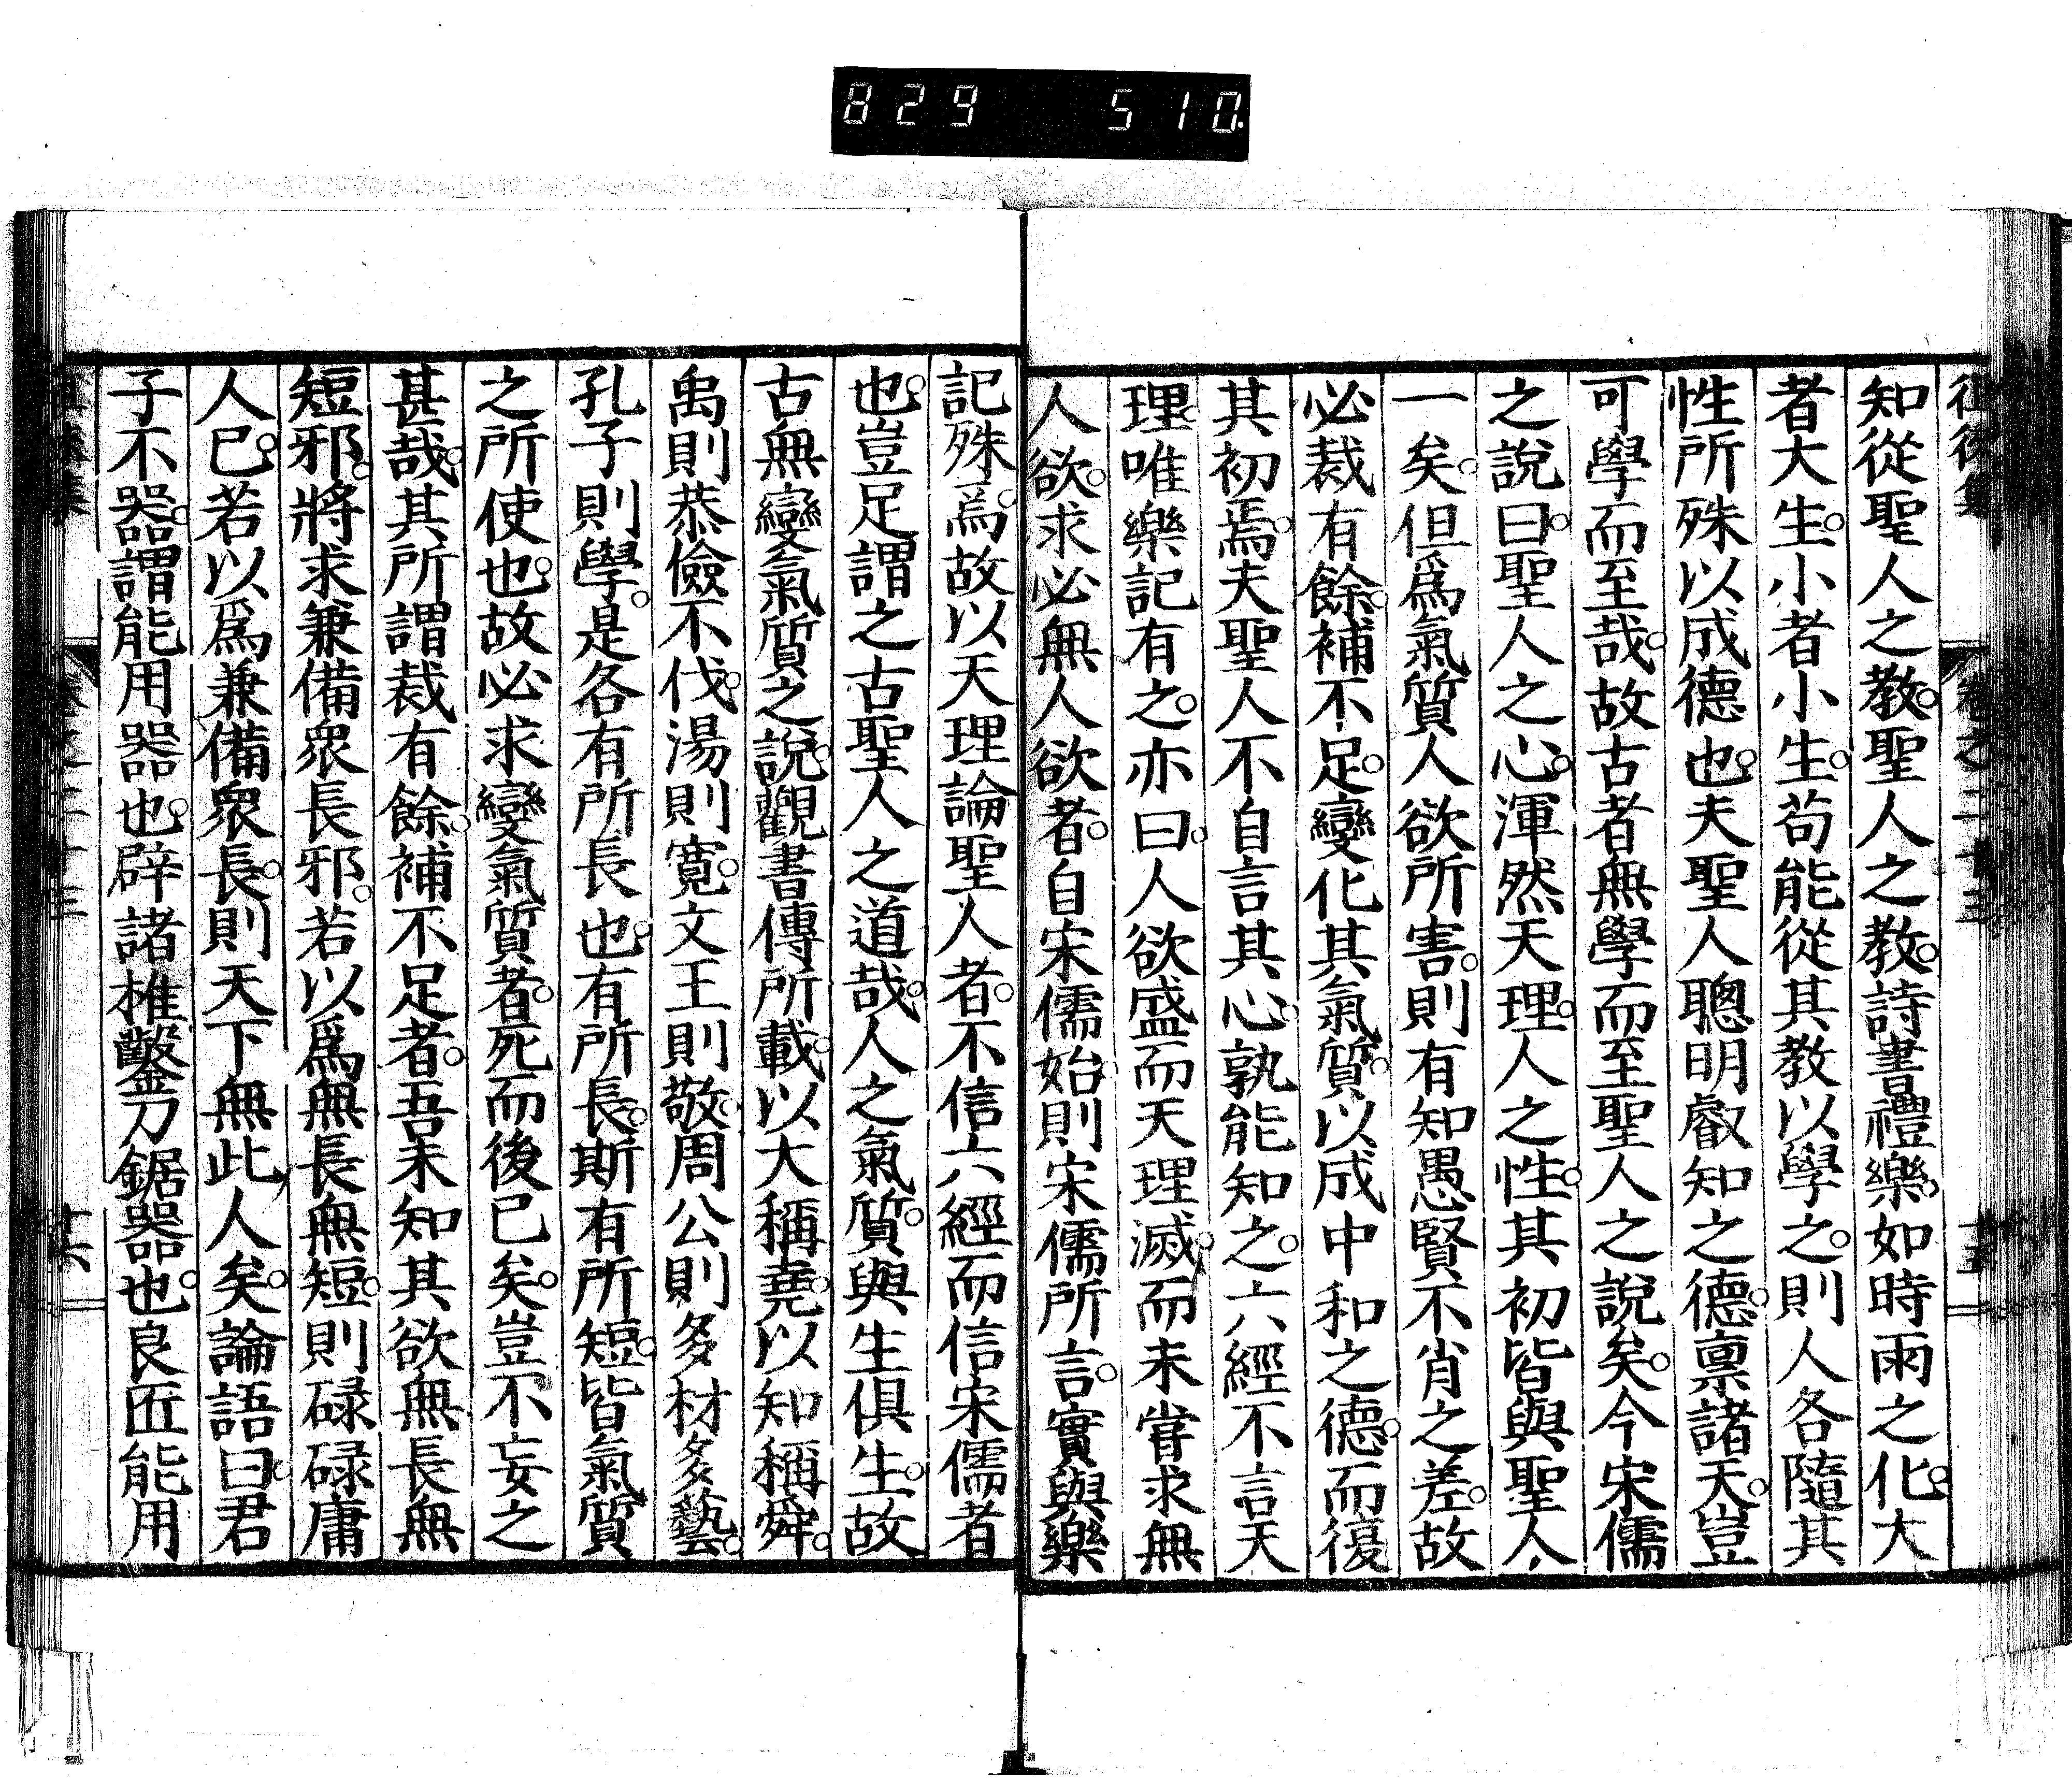 829 510.
知從聖人之教。聖人之教。詩書禮樂。如時雨之化。大
者大生。小者小生。苟能從其教以學之。則人各隨其
性所殊以成德也。夫聖人聰明叡知之德。禀諸天。豈
可學而至哉。故古者無學而至聖人之說矣。今宋儒
之說曰。聖人之心。渾然天理。人之性。其初皆與聖人
一矣。但爲氣質人欲所害。則有知愚賢不肖之差。故
必裁有餘。補不足。變化其氣質。以成中和之德。而復
其初焉。夫聖人不自言其心。孰能知之。六經不言天
理。唯樂記有之。亦曰。人欲盛而天理滅。而未嘗求無
人欲。求必無人欲者。自宋儒始。則宋儒所言。實與樂
記殊焉。故以天理論聖人者。不信六經而信宋儒者
也。豈足謂之古聖人之道哉。人之氣質。與生俱生。故
古無變氣質之說。觀書傳所載。以大稱堯。以知稱舜。
禹則恭儉不伐。湯則寬。文王則敬。周公則多材多藝。
孔子則學。是各有所長也。有所長。斯有所短。皆氣質
之所使也。故必求變氣質者。死而後已矣。豈不妄之
甚哉。其所謂裁有餘。補不足者。吾未知其欲無長無
短邪。將求兼備衆長邪。若以爲無長無短。則碌碌庸
人已。若以爲兼備衆長。則天下無此人矣。論語曰。君
子不器。謂能用器也。辟諸椎鑿刀鋸器也。良匠能用